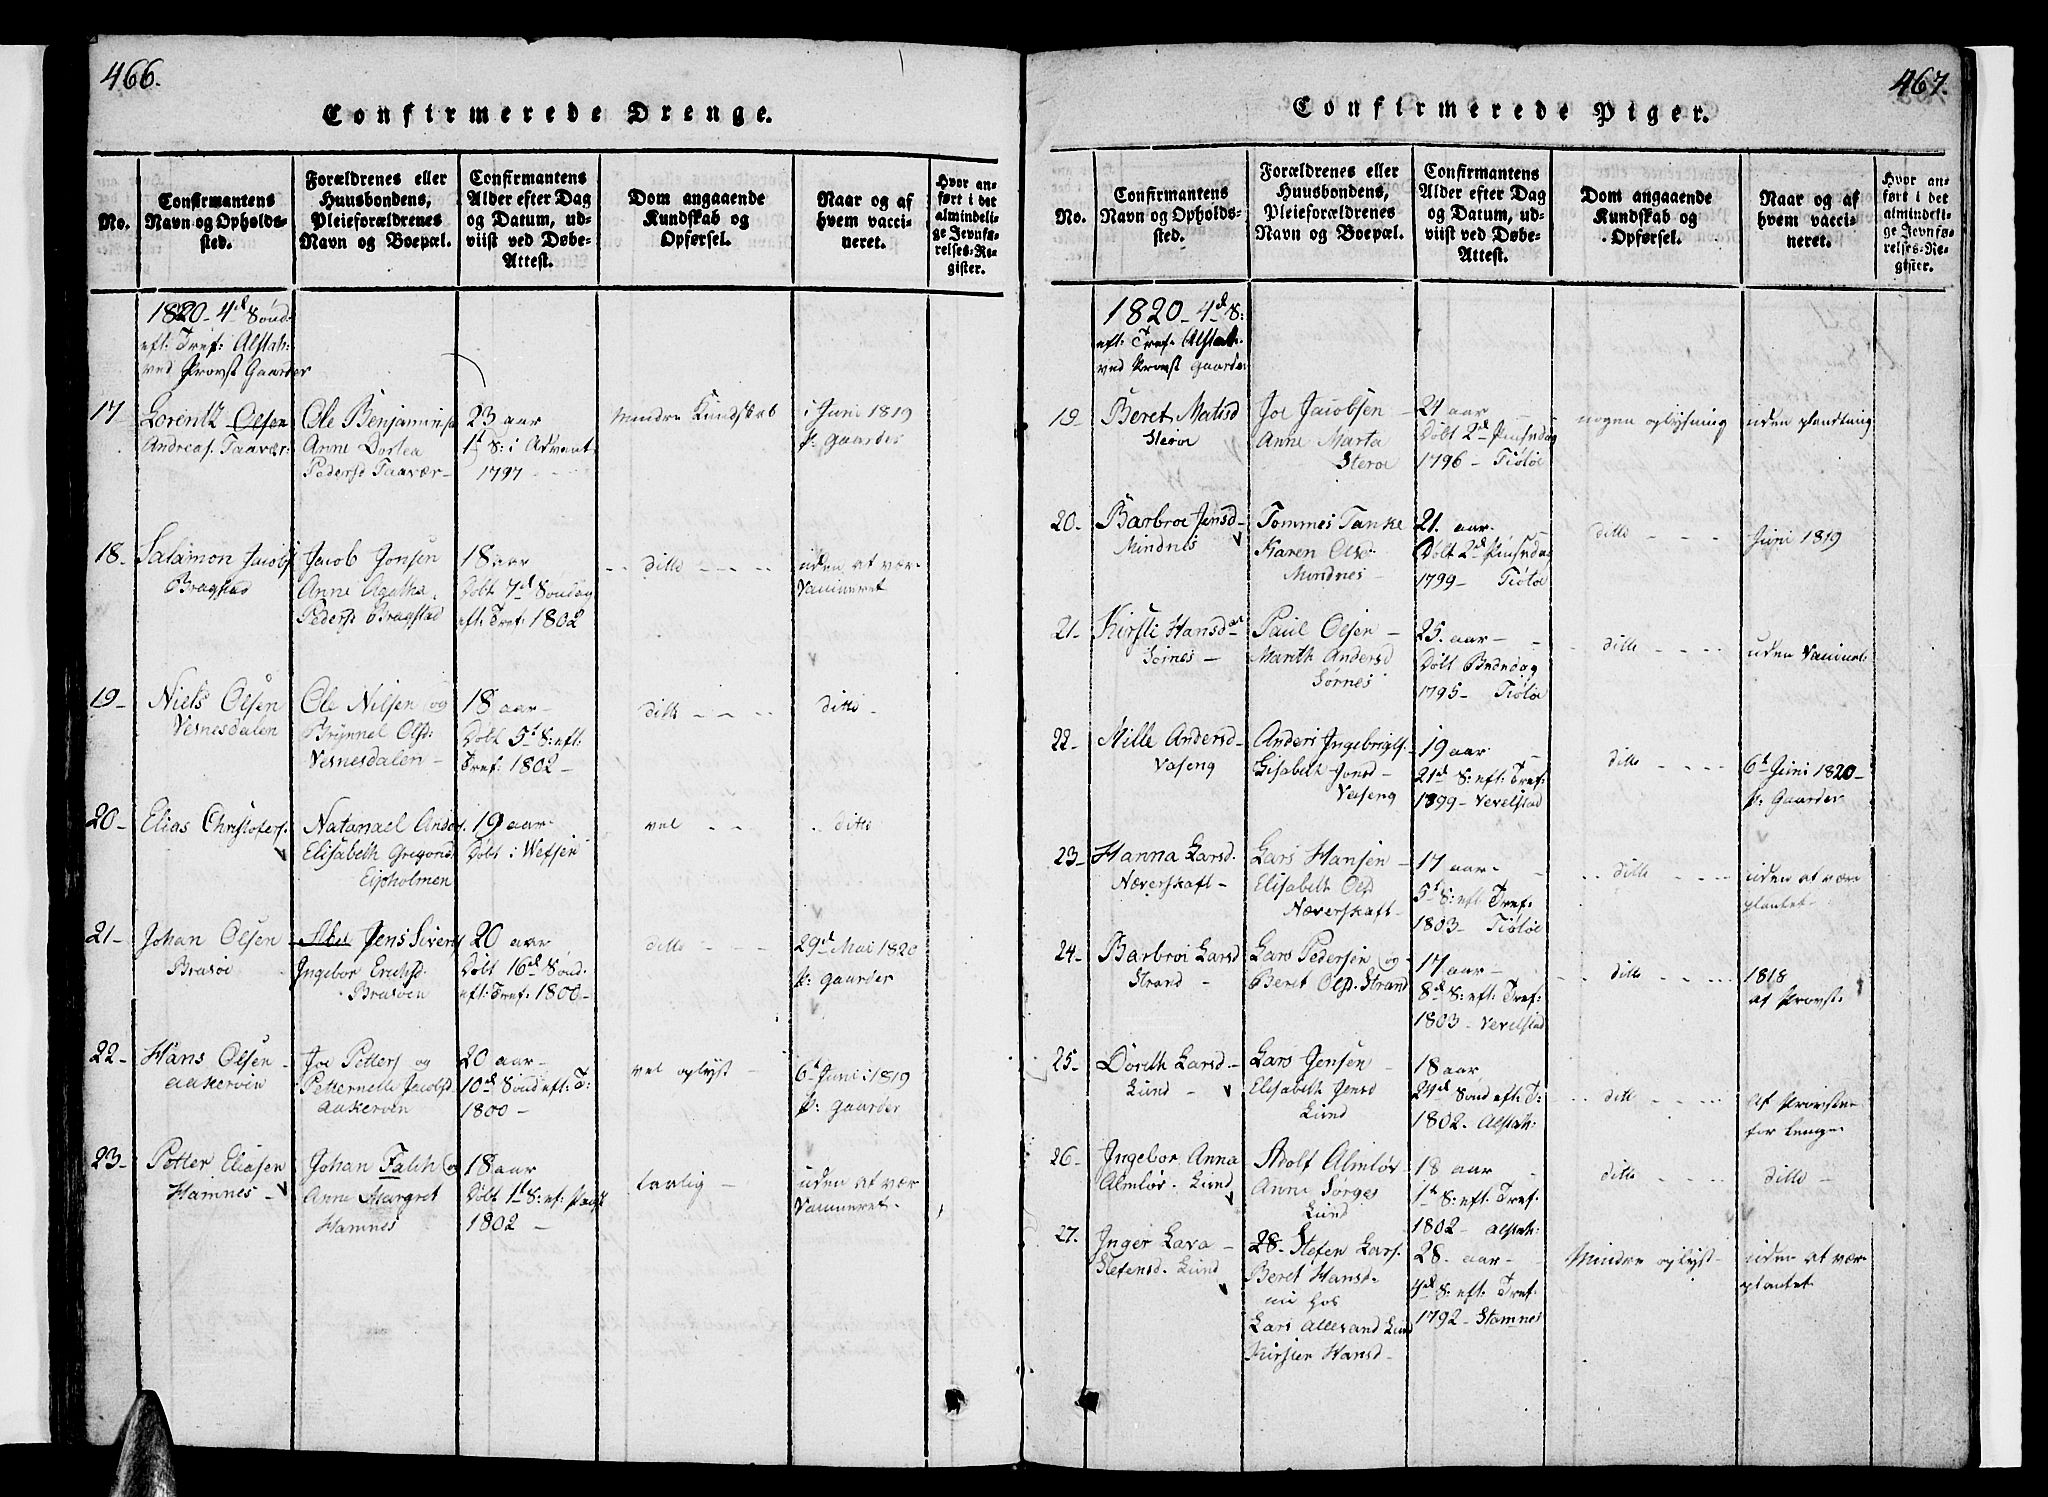 466.
Confirmerede Drenge.
No.
Confirmantens
Navn og Opholds-
sted.
Forældrenes eller
Huusbondens,
Pleieforældrenes
Navn og Boepæl.
Confirmantens
Alder efter Dag
og Datum, ud-
viist ved Døbe-
Attest.
Dom angaaende
Kundskab og
Opførsel.
Naar og af
hvem vacci-
neret.
Hvor an-
ført i det
almindeli-
ge Jevnfø-
relses-Re-
gister.
1820 - 4d Sønd.
eft: Tref: Alstah:
ved Provst Gaarder
17
Lorentz Olsen
Andreas. Taavær.
Ole Benjamins
Anne Dortea
Pedersd Taavær-
23 aar
1t S: i Advent
1797
Mindre Kundskab
i Juni 1819
P: Gaarder
18-
Salamon Jacobs
Bragstad
Jacob Jonsen
Anne Agatha
Pedersd Bragstad
18 aar
Døbt 7d Søndag
eft: Tref: 1802
ditto
uden at vær
Vaccineret
19-
Niels Olsen
Vesnesdalen
Ole Nilsen og
Brynnel Olsd:
Vesnesdalen-
18 aar-
Døbt 5t S: eft:
Tref: 1802-
ditto
ditto-
20-
Elias Christofers.
Natanael Anders.
Elisabeth Gregorsd
Eisholmen
19 aar-
Døbt i Wefsen
vel
ditto
21-
Johan Olsen
Brasøe
Jens Sivers
Ingebor Erichsd.
Brasøen
20 aar
Døbt 16d Sønd.
eft: Tref: 1800-
ditto
29d Mai 1820
P: Gaarder
22-
Hans Olsen-
Aakervin
Joe Petters og
Petternelle Jacobsd
Aakervin
20 aar-
10d Sønd eft: T:
1800-
vel oplyst-
6t Juni 1819
P: Gaarder
23-
Petter Eliasen
Hamnes-
Johan Falch og
Anne Margret
Hamnes
18 aar
Døbt 1t S: ef: Paask
1802-
taalig-
uden at vær
Vaccineret.
467.
Confirmerede Piger.
No.
Confirmantens
Navn og Opholds-
sted.
Forældrenes eller
Huusbondens,
Pleieforældrenes
Navn og Boepæl.
Confirmantens
Alder efter Dag
og Datum, ud-
viist ved Døbe-
Attest.
Dom angaaende
Kundskab og
Opførsel.
Naar og af
hvem vacci-
neret.
Hvor an-
ført i det
almindeli-
ge Jevnfø-
relses-Re-
gister.
1820 - 4d S:
eft: Tref: Alstah.
ved Provst Gaarder
19-
Beret Matisd
Sterøe
Joe Jacobsen-
Anne Marta
Sterøe
21 aar
Døbt 2d Pinsedag
1796- Tiøtøe
nogen oplysning
uden plantning
20-
Barbroe Jensd-
Mindnes
Tommes Tanke
Karen Olsd
Mindnes-
21. aar-
Døbt 2d Pinsedag
1799- Tiøtøe
ditto
Juni 1819
21-
Kirsti Hansd
Sørnes-
Paul Olsen-
Marith Andersd
Sørnes
25. aar-
Døbt Bededag
1795- Tiøtøe
ditto
uden Vaccinat
22-
Nille Andersd-
Vaseng
Anders Ingebrigts.
Lisabeth Jonsd-
Vaseng
19 aar
21d S: eft: Tref:
1799- Vevelstad
ditto
6t Juni 1820-
P: Gaarder
23-
Hanna Larsd.
Næverskaft-
Lars Hansen-
Elisabeth Olsd
Næverskaft-
17 aar-
5t S: eft: Tref:
1803- Tiøtøe
ditto
uden at være
plantet-
24-
Barbroe Larsd
Strand-
Lars Pedersen og-
Beret Olsd. Strand
17 aar-
8d S: eft: Tref:
1803- Vevelstad
ditto
1818
af Provst.
25-
Doreth Larsd-
Lund-
Lars Jensen-
Elisabeth Jensd
Lund
18 aar
24d Sønd eft: T:
1802- Alstah:
ditto
af Provsten
for længe
26-
Ingebor Anna
Almlør. Lund
Adolf Almlør
Anne Sørges
Lund
18 aar-
1t S: eft: Tref:
1802- Alstah:
ditto
ditto-
27.
Inger Lava-
Stefensd. Lund
28- Stefen Lars.
Beret Hansd.
nu hos
Lars Allesand Lund
Kirsten Hansd-
28. aar-
4d S: eft: Tref:
1792- Stamnes
Mindre oplyst-
uden at vær
plantet